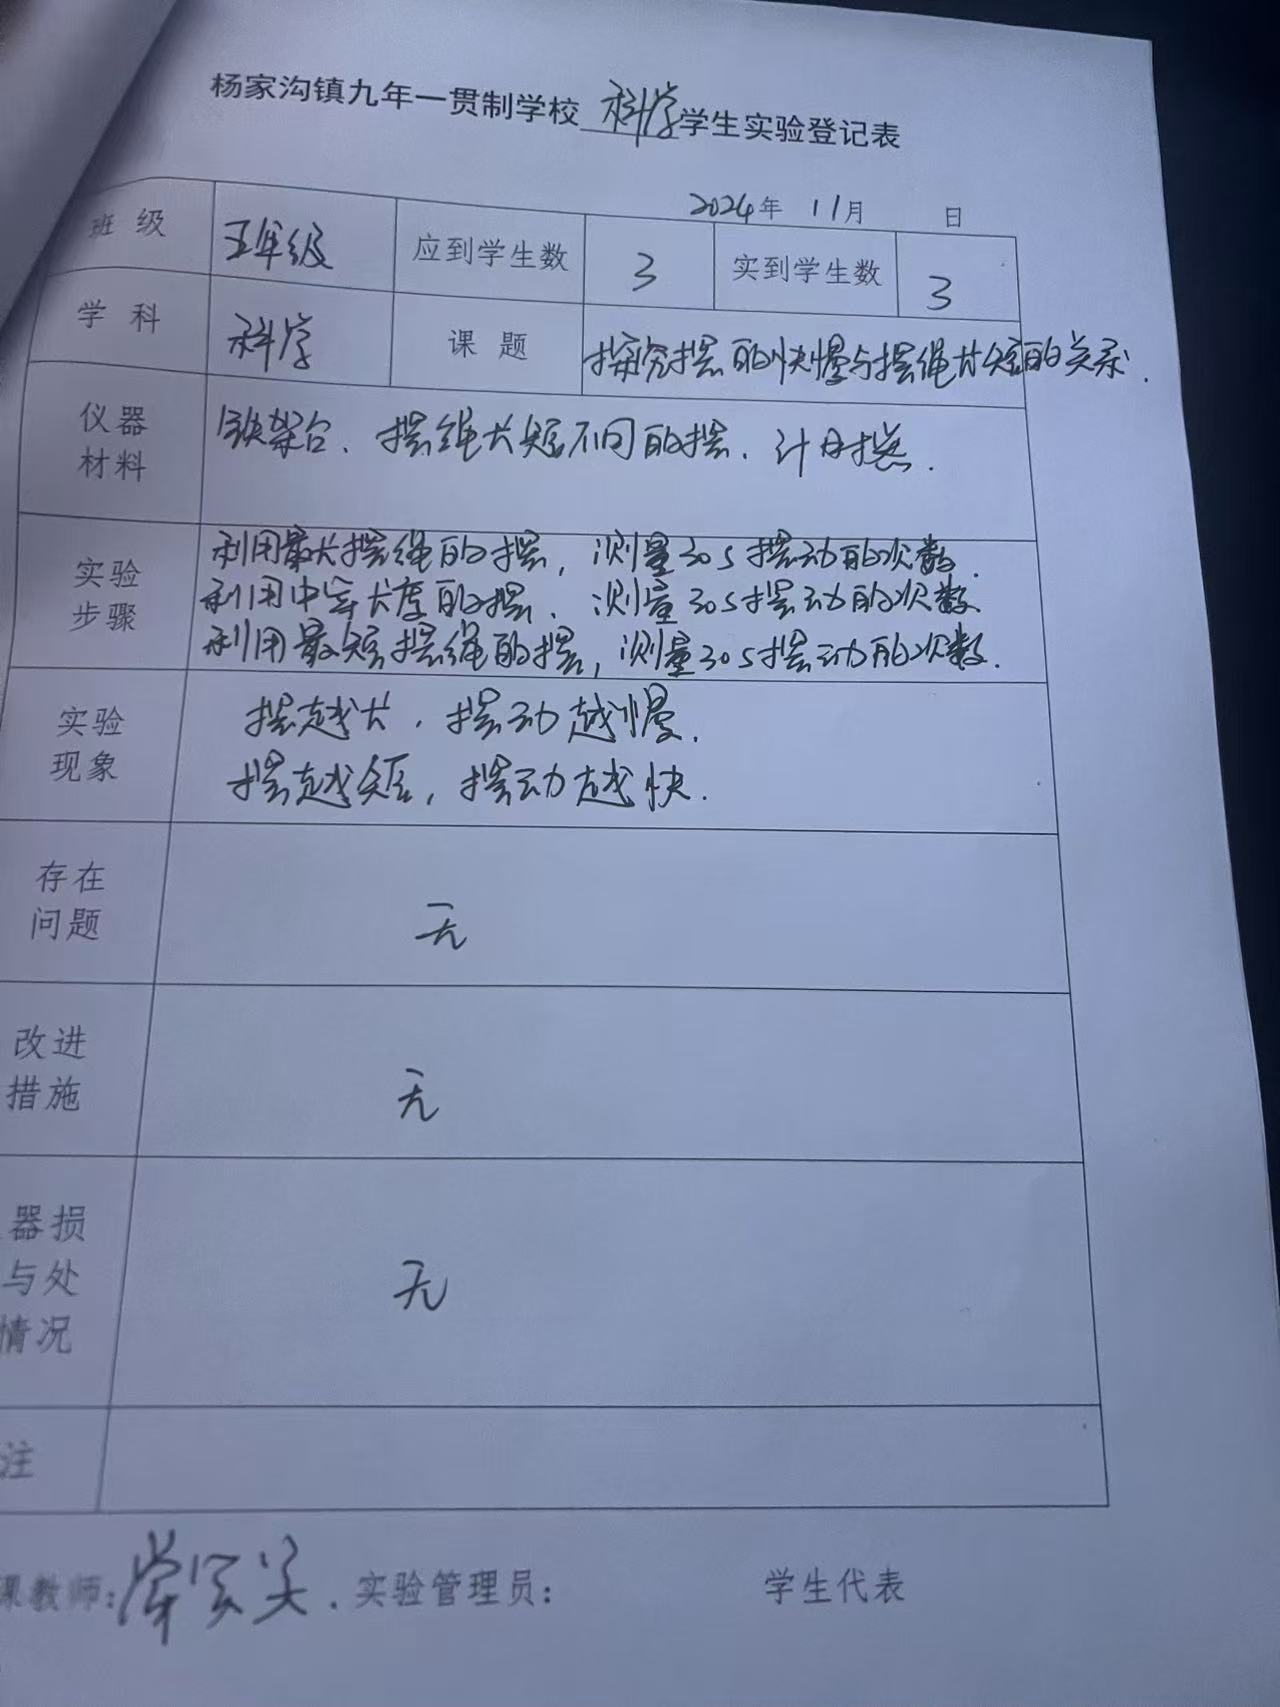 杨家沟镇九年一贯制学校 科学 学生实验登记表
2024年 11月 日
班 级 五年级 应到学生数 3 实到学生数 3
学 科 科学 课 题 探究摆的快慢与摆绳长短的关系.
仪器 铁架台、摆绳长短不同的摆、计时
材料
利用最长摆绳的摆，测量30s摆动的次数.
实验 利用中等长度的摆、测量30s摆动的次数
步骤 利用最短摆绳的摆，测量30s摆动的次数.
实验 摆越长，摆动越慢.
现象 摆越短，摆动越快.
存在
问题
无
改进
措施
无
器损
与处
情况
无
注
课教师: 实验管理员: 学生代表